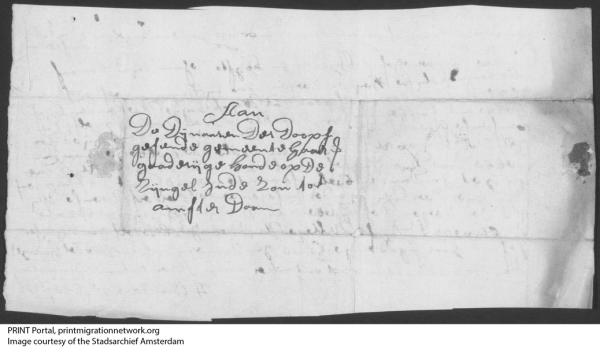 Aan
De Dijnaaren Der Doops
gesinde gemeente Haar
vergaaderinge Hende op De
Zijngel inde Zon tot
amsterdam
PRINT Portal, printmigrationnetwork.org
Image courtesy of the Stadsarchief Amsterdam